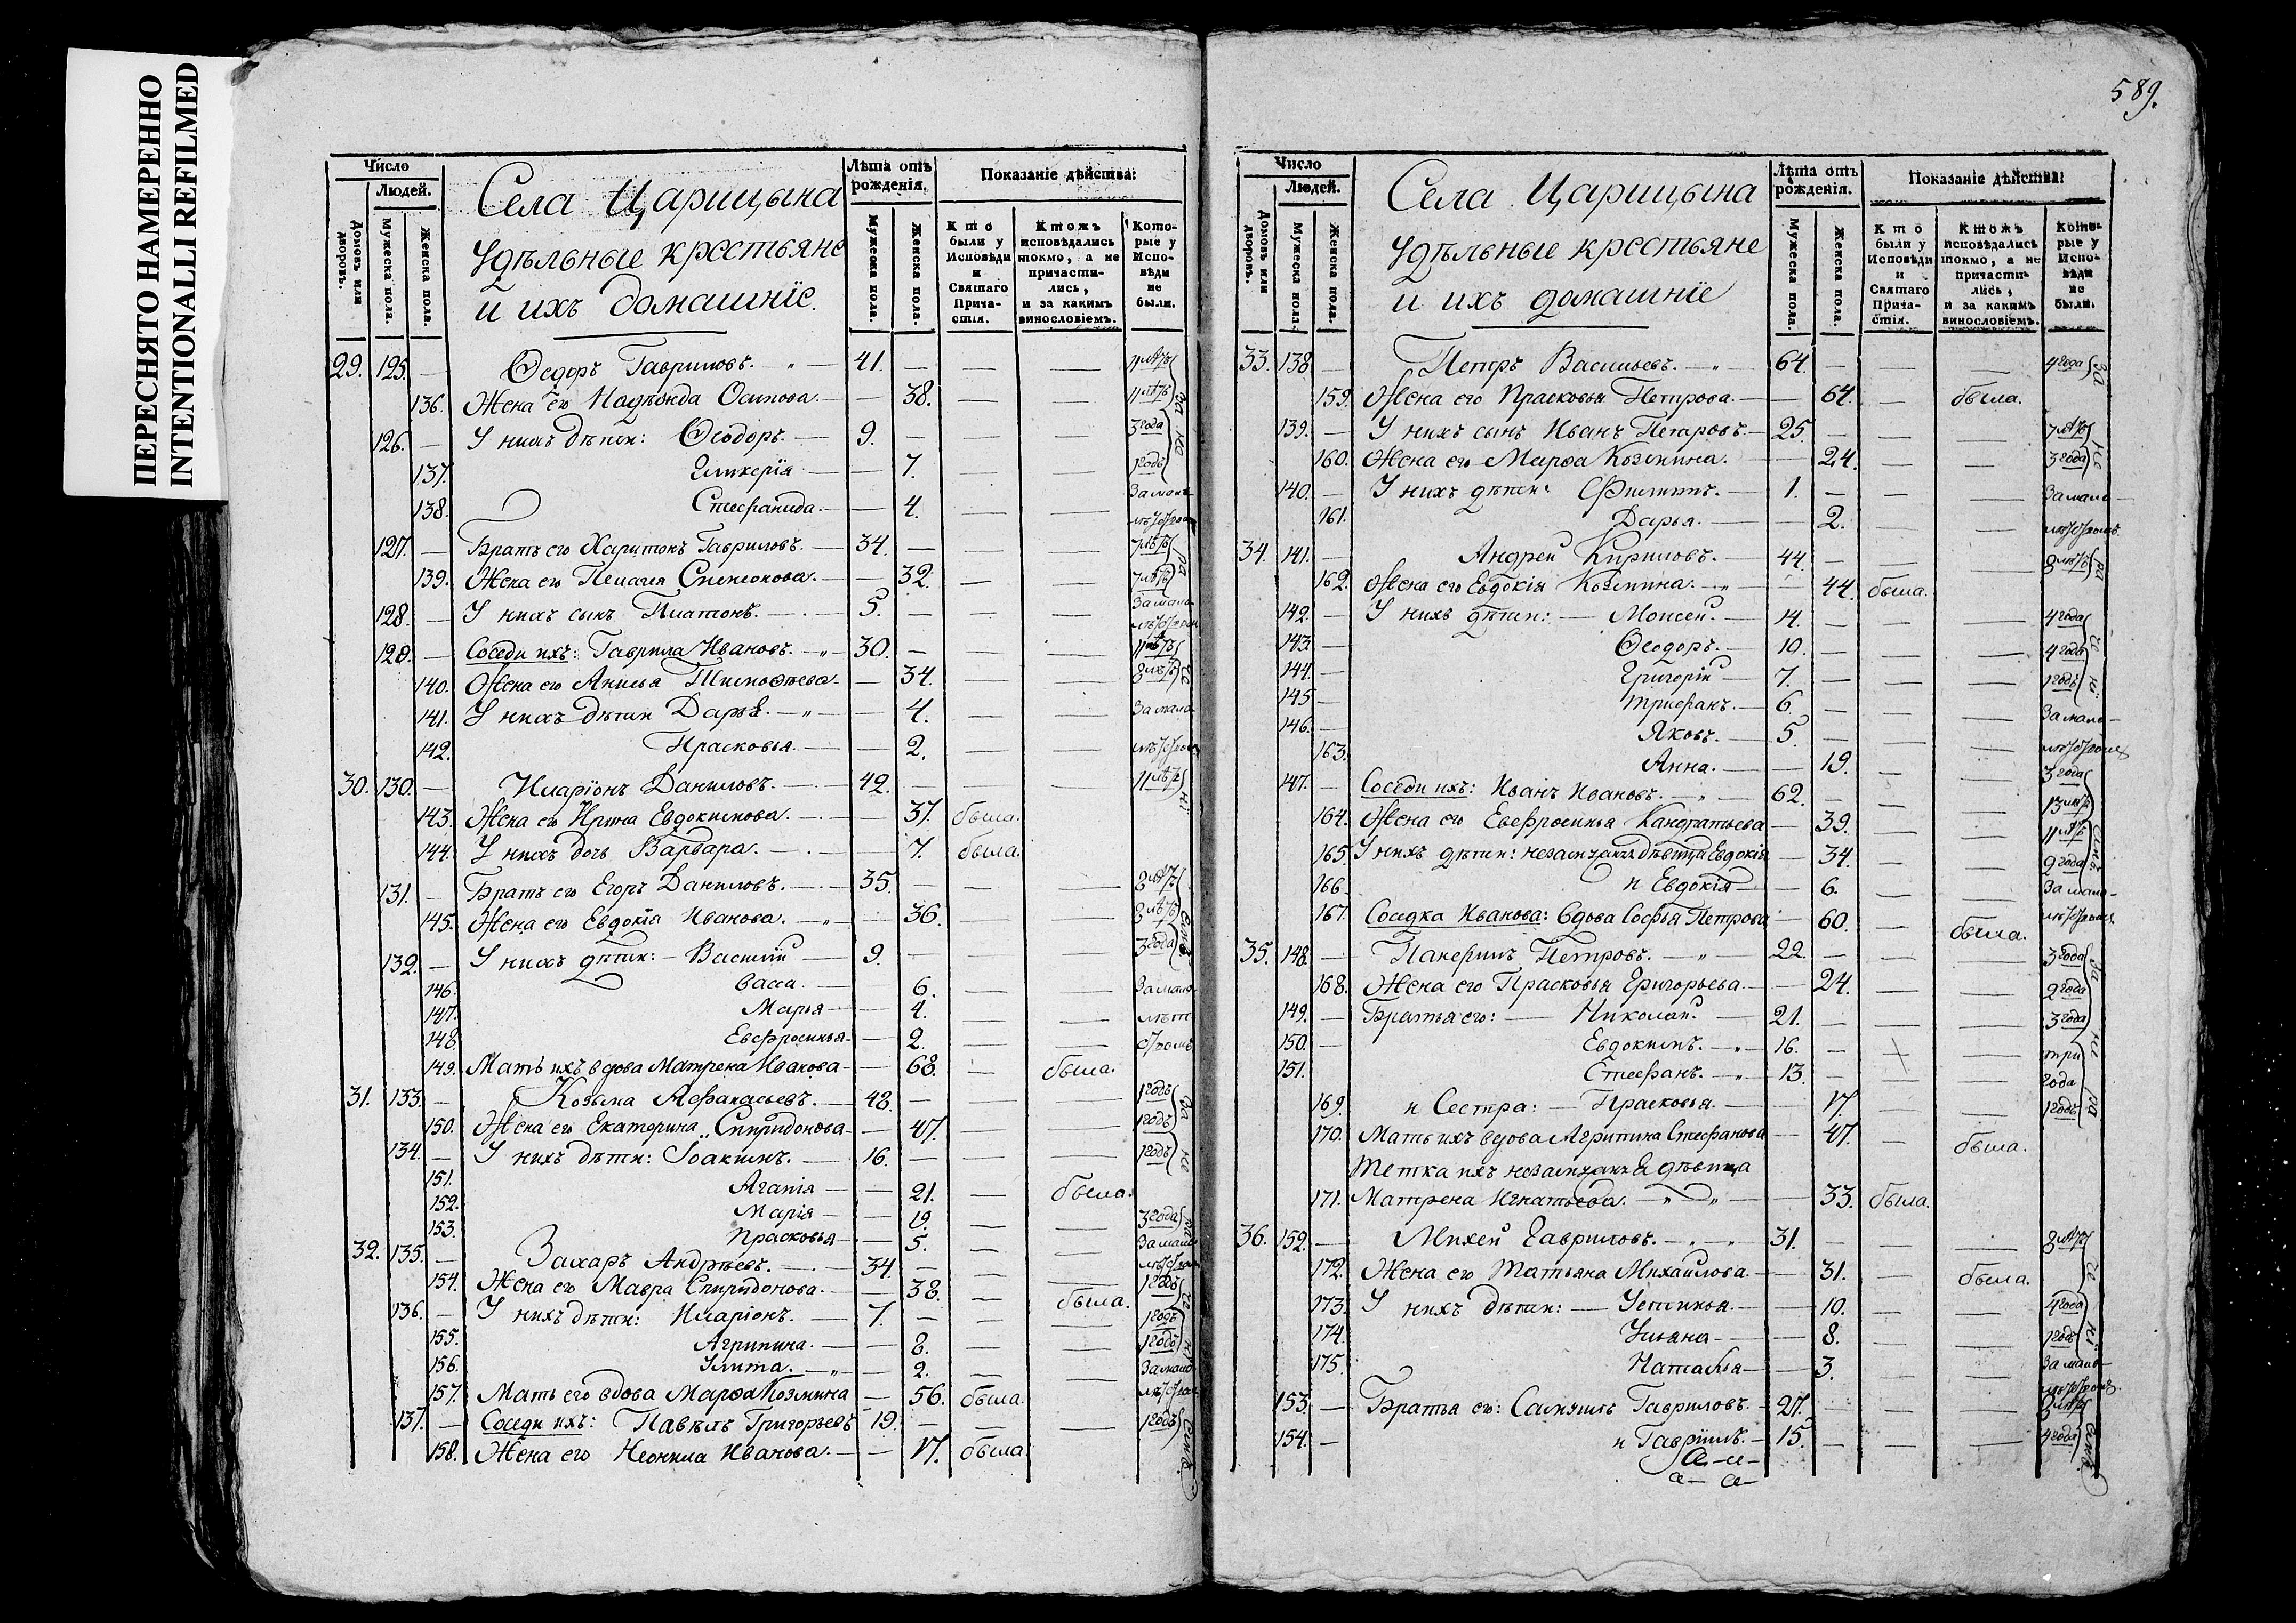 ПЕРЕСНЯТО НАМЕРЕННО
INTENTIONALLI REFILMED
Число
Людей.
Домовъ или дворовъ.
Мужеска пола.
Женска пола.
Села Царицына
Удѣльные крестьяне
и ихъ домашніе.
Лѣта отъ рожденія.
Мужеска пола.
Женска пола.
Показаніе дѣйства:
Кто были у Исповѣди и Святаго Прича-стія.
Ктожъ исповѣдались токмо, а не причасти-лись, и за какимъ винословіемъ.
Кото-рые у Испо-вѣди не были.
29. 125. — Ѳедоръ Гавриловъ. — 41. — — — 11 лѣтъ
136. Жена его Надѣжда Осипова. — — 38. — — 11 лѣтъ
126. — У нихъ дѣти: Ѳеодоръ. — 9. — — — 3 года
137. Гликерїя — — 7. — — 1 годъ
138. Стефанида. — — 4. — — За мало
127. — Братъ его Харитонъ Гавриловъ. — 34. — — — 7 лѣтъ
139. Жена его Пелагея Симеонова. — — 32. — — 7 лѣтъ
128. — У нихъ сынъ Платонъ. — 5. — — — За мало
128. — Соседи ихъ: Гаврила Ивановъ. — 30. — — — 11 лѣтъ
140. Жена его Анисья Тимофѣева — — 34. — — 8 лѣтъ
141. У нихъ дѣти Дарья. — — 4. — — За мало
142. Прасковья. — — 2. — —
30. 130. — Иларїонъ Даниловъ. — 42. — — — 11 лѣтъ
143. Жена его Ирина Евдокимова. — — 37. была.
144. У нихъ дочь Варвара. — — 7. была.
131. — Братъ его Егоръ Даниловъ. — 35. — — — 8 лѣтъ
145. Жена его Евдокїа Иванова. — — 36. — — 8 лѣтъ
132. — У нихъ дѣти: — Василий — 9. — — — 3 года
146. Васса. — — 6. — — За мало
147. Марья — — 4. — — лѣт
148 Евфросинья — — 2. — —
149. Мать ихъ вдова Матрена Иванова — — 68. — была.
31. 133. — Козьма Афанасьевъ. — 48. — — — 1 годъ
150. Жена его Екатерина Спиридонова — — 47. — — 1 годъ
134. — У нихъ дѣти: Іоакимъ. — 16. — — — 1 годъ
151. Агапія — — 21. — была.
152. Марія — — 19. — — 3 года
153. Прасковья — — 5. — — За мало
32. 135. — Захаръ Андрѣевъ. — 34. — — — 1 годъ
154. Жена его Мавра Спиридонова. — — 38. — была.
136. — У нихъ дѣти: Иларїонъ. — 7. — — — 1 годъ
155. Агрипина. — — 8. — — 1 годъ
156. Улита. — — 2. — — За мало
157. Мать его вдова Марѳа Козмина — 56. была.
137. — Соседи ихъ: Павѣлъ Григорьевъ 19. — — — 1 годъ
158. Жена его Неонила Иванова. — — 17. была.
589.
Число
Людей.
Домовъ или дворовъ.
Мужеска пола.
Женска пола.
Села Царицына
Удѣльные крестьяне
и ихъ домашнїе
Лѣта отъ рожденія.
Мужеска пола.
Женска пола.
Показаніе дѣйства:
Кто были у Исповѣди и Святаго Прича-стія.
Ктожъ исповѣдались токмо, а не причасти-лись, и за какимъ винословіемъ.
Кото-рые у Испо-вѣди не были.
33. 138. — Петръ Васильевъ. — 64. — — — 4 года
159. Жена его Прасковья Петрова. — — 64. — была.
139. — У нихъ сынъ Иванъ Петровъ. — 25. — — — 7 лѣтъ
160. Жена его Марѳа Козмина. — — 24. — — 3 года
140. — У нихъ дѣти: Филипъ. — 1. — — — За мало —
161. Дарья. — — 2. — —
34. 141. — Андрей Кириловъ. — 44. — — — 8 лѣтъ
162. Жена его Евдокїя Козмина. — — 44. была.
142. — У нихъ дѣти: — Моисей. — 14. — — — 4 года
143. — Ѳеодоръ. — 10. — — — 4 года
144. — Григорій — 7. — — — 1 годъ
145. — Трифанъ. — 6. — — — За мало —
146. — Яковъ. — 5. — — —
163. Анна. — — 19. — — 3 года
147. — Соседи ихъ: Иванъ Ивановъ. — 62. — — — 13 лѣтъ
164. Жена его Евфросинья Кандратьева — 39. — — 11 лѣтъ
165. У нихъ дѣти: незамужня дѣвица Евдокїя — 34. — — 2 года
166. и Евдокїя — — 6. — — За мало —
167. Соседка Иванова: вдова Софья Петрова — 60. — была.
35. 148. — Панфилъ Петровъ. — 22. — — — 3 года
168. Жена его Прасковья Григорьева. — — 24. — — 2 года
149. — Братья его: — Николай. — 21. — — — 3 года
150. — Евдокимъ. — 16. — — — три
151. — Стефанъ. — 13. — — — года
169. и Сестра: — Прасковья. — — 17. — — 1 годъ
170. Мать ихъ вдова Агрипина Стефанова — 47. — была.
Тетка ихъ незамужня дѣвица
171. Матрена Игнатьева. — — 33. была.
36. 152. — Михей Гавриловъ. — 31. — — — 8 лѣтъ
172. Жена его Татьяна Михайлова. — — 31. — была.
173. У нихъ дѣти: — Устинья. — — 10. — — 4 года
174. Ульяна — — 8. — — 1 годъ
175. Наталья — — 3. — — За мало —
153. — Братья его: Самуилъ Гавриловъ. — 27. — — —
154. — и Гаврїилъ. — 15. — — — 4 года